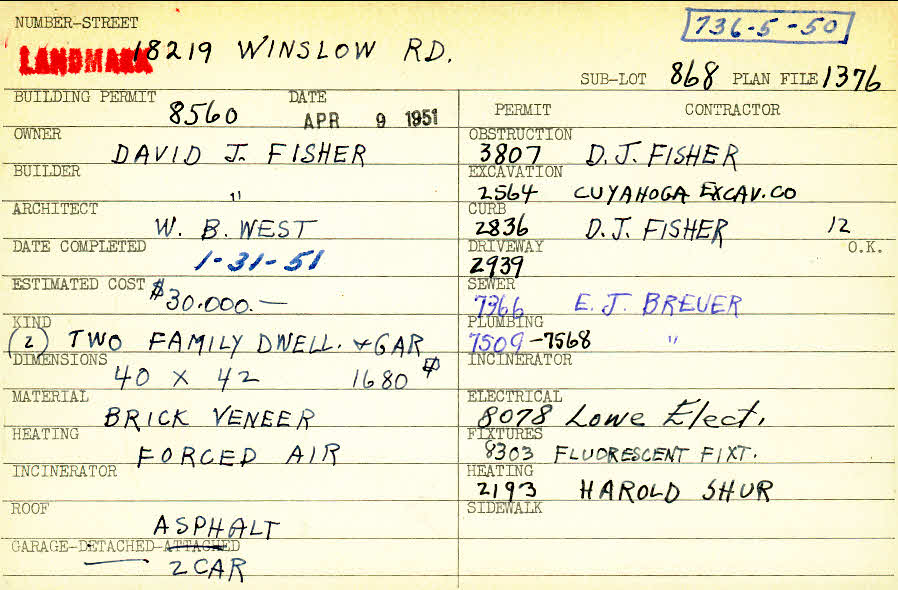 NUMBER-STREET
736-5-50
LANDMARK 18219 WINSLOW RD.
SUB-LOT 868 PLAN FILE 1376
BUILDING PERMIT 8560 DATE APR 9 1951
PERMIT CONTRACTOR
OWNER DAVID J. FISHER
OBSTRUCTION 3807 D.J. FISHER
BUILDER "
EXCAVATION 2564 CUYAHOGA EXCAV. CO
ARCHITECT W. B. WEST
CURB 2836 D.J. FISHER 12
DATE COMPLETED 1-31-51
DRIVEWAY 2939 O.K.
ESTIMATED COST $30.000.—
SEWER 7366 E.J. BREUER
KIND (2) TWO FAMILY DWELL. & GAR
PLUMBING 7509-7568 "
DIMENSIONS 40 X 42 1680
INCINERATOR
MATERIAL BRICK VENEER
ELECTRICAL 8078 Lowe Elect.
HEATING FORCED AIR
FIXTURES 8303 FLUORESCENT FIXT.
INCINERATOR
HEATING 2193 HAROLD SHUR
ROOF ASPHALT
SIDEWALK
GARAGE-DETACHED-ATTACHED
2 CAR